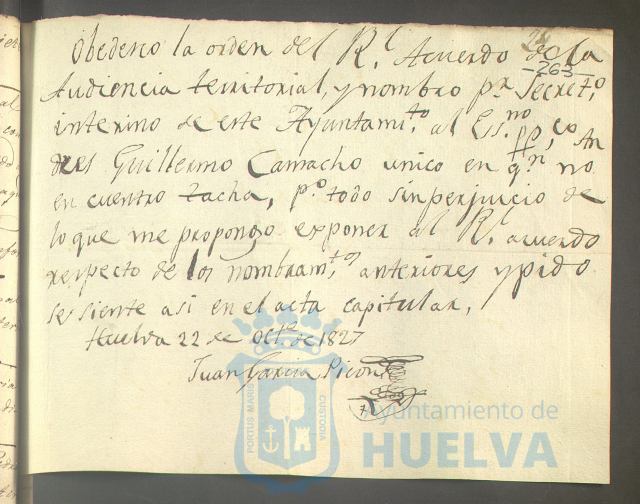 Obedesco la orden del R.l Acuerdo de la
-263-
Audiencia territorial, y nombro p.r Secret.o
interino de este Ayuntami.to al Es.no pp.co An
dres Guillermo Camacho unico en q.n no
en cuentro tacha, p.o todo sin perjuicio de
lo que me propongo exponer al R.l acuerdo
respecto de los nombram.tos anteriores y pido
se siente asi en el acta capitular.
Huelva 22 de Oct.e de 1827
Juan Garcia Picon
PORTUS MARIS CUSTODIA
Ayuntamiento de
HUELVA